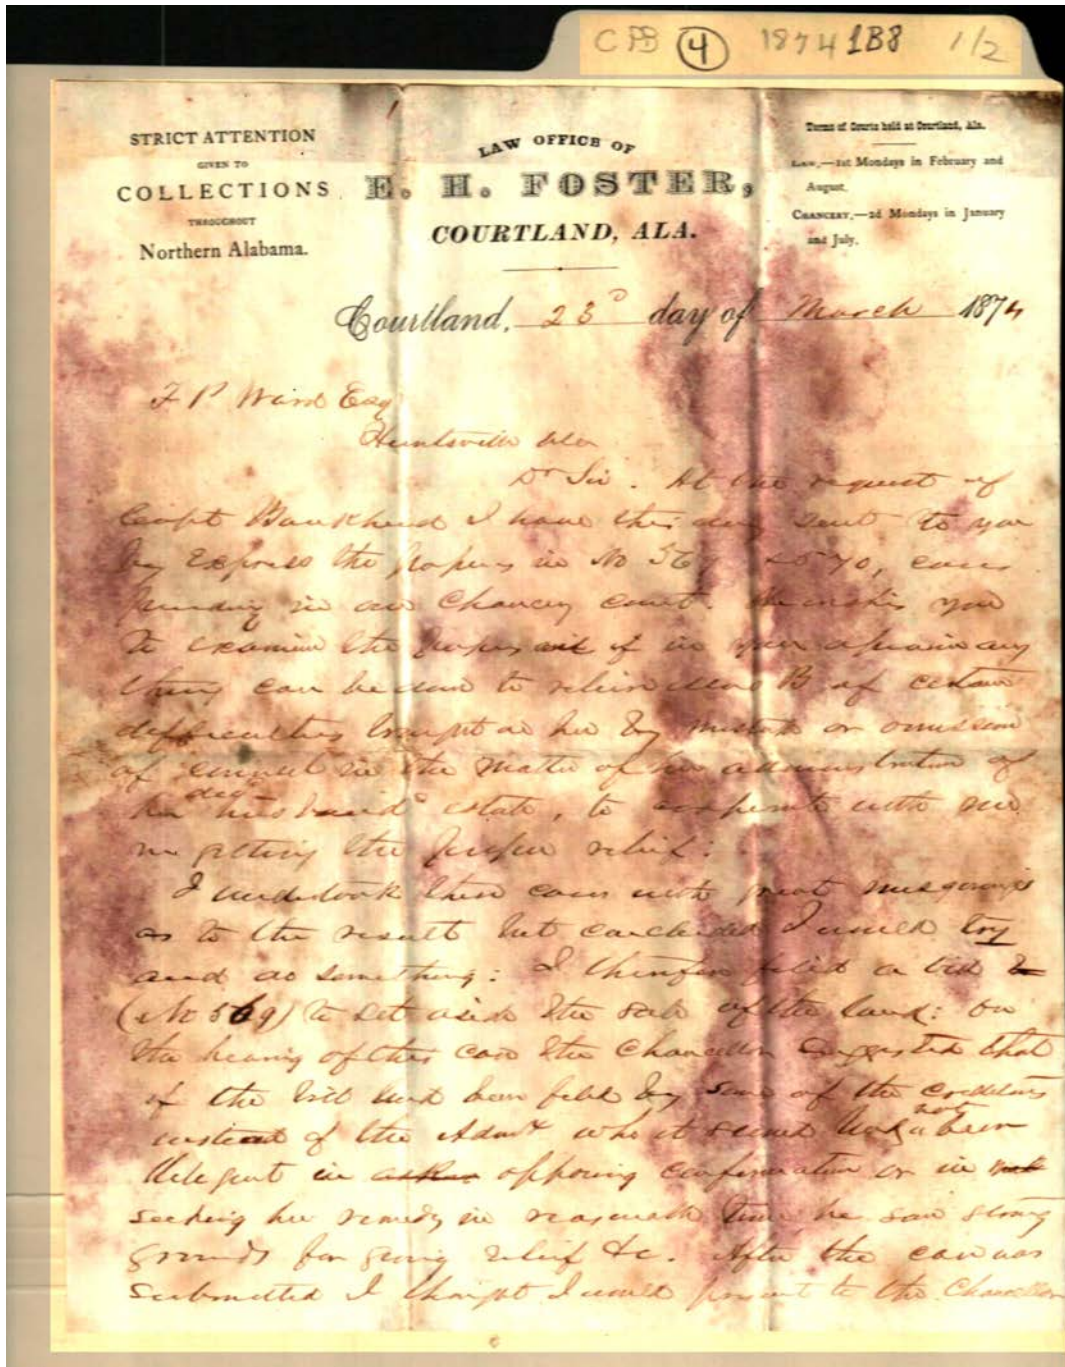 CPB 4 1874 1B8 1/2
STRICT ATTENTION
GIVEN TO
COLLECTIONS
THROUGHOUT
Northern Alabama.
LAW OFFICE OF
E. H. FOSTER,
COURTLAND, ALA.
Terms of Courts held at Courtland, Ala.
LAW,—1st Mondays in February and
August.
CHANCERY,—2d Mondays in January
and July.
Courtland, 23d day of March 1874
F P Ward Esq
Huntsville Ala
Dr Sir. At the request of
Capt Bankhead I have this day sent to you
by Express the papers in No 56 70, cases
pending in our Chancery court. He wishes you
to examine the papers and if in your opinion any
thing can be done to relieve Mrs B of certain
difficulties brought on her by mistake or omission
of counsel in the matter of her administration of
her decd husband estate, to cooperate with me
in getting the proper relief:
I undertook these cases with great misgivings
as to the result but concluded I would try
and do something: I therefore filed a bill to
(No 569) to set aside the sale of the land: on
the hearing of this case the Chancellor suggested that
if the bill had been filed by some of the creditors
instead of the Admx who it seemed had not been
diligent in opposing confirmation or in
seeking her remedy in reasonable time he saw strong
grounds for giving relief &c. After the case was
submitted I thought I would present to the Chancellor